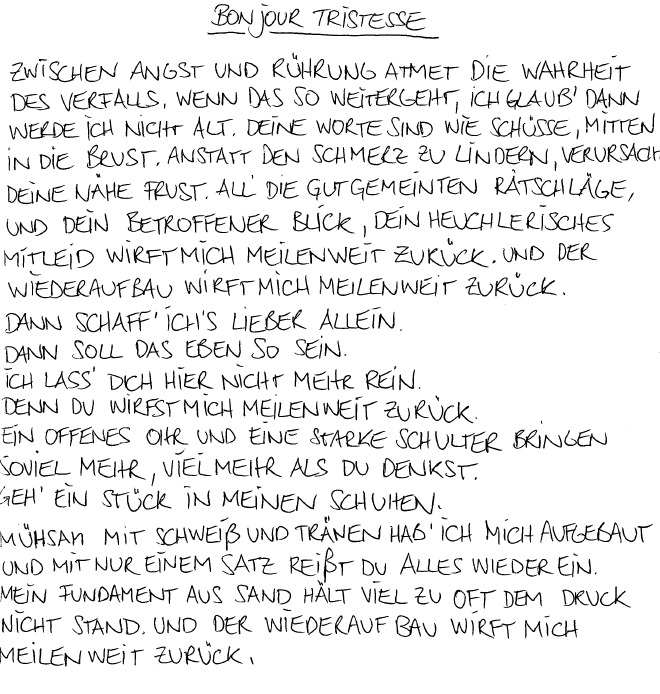 BONJOUR TRISTESSE
ZWISCHEN ANGST UND RÜHRUNG ATMET DIE WAHRHEIT
DES VERFALLS. WENN DAS SO WEITERGEHT, ICH GLAUB' DANN
WERDE ICH NICHT ALT. DEINE WORTE SIND WIE SCHÜSSE, MITTEN
IN DIE BRUST. ANSTATT DEN SCHMERZ ZU LINDERN, VERURSACH
DEINE NÄHE FRUST. ALL' DIE GUTGEMEINTEN RATSCHLÄGE,
UND DEIN BETROFFENER BLICK, DEIN HEUCHLERISCHES
MITLEID WIRFT MICH MEILENWEIT ZURÜCK. UND DER
WIEDERAUFBAU WIRFT MICH MEILENWEIT ZURÜCK.
DANN SCHAFF' ICH'S LIEBER ALLEIN.
DANN SOLL DAS EBEN SO SEIN.
ICH LASS' DICH HIER NICHT MEHR REIN.
DENN DU WIRFST MICH MEILENWEIT ZURÜCK.
EIN OFFENES OHR UND EINE STARKE SCHULTER BRINGEN
SOVIEL MEHR, VIEL MEHR ALS DU DENKST.
GEH' EIN STÜCK IN MEINEN SCHUHEN.
MÜHSAM MIT SCHWEIß UND TRÄNEN HAB' ICH MICH AUFGEBAUT
UND MIT NUR EINEM SATZ REIßT DU ALLES WIEDER EIN.
MEIN FUNDAMENT AUS SAND HÄLT VIEL ZU OFT DEM DRUCK
NICHT STAND. UND DER WIEDERAUFBAU WIRFT MICH
MEILENWEIT ZURÜCK.